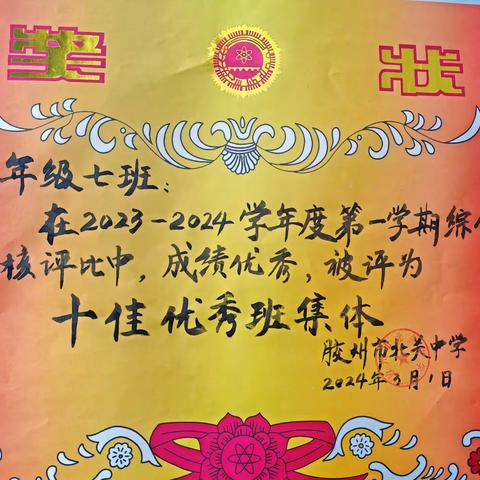 奖状
年级七班：
在2023-2024学年度第一学期综
核评比中，成绩优秀，被评为
十佳优秀班集体
胶州市北关中学
2024年3月1日